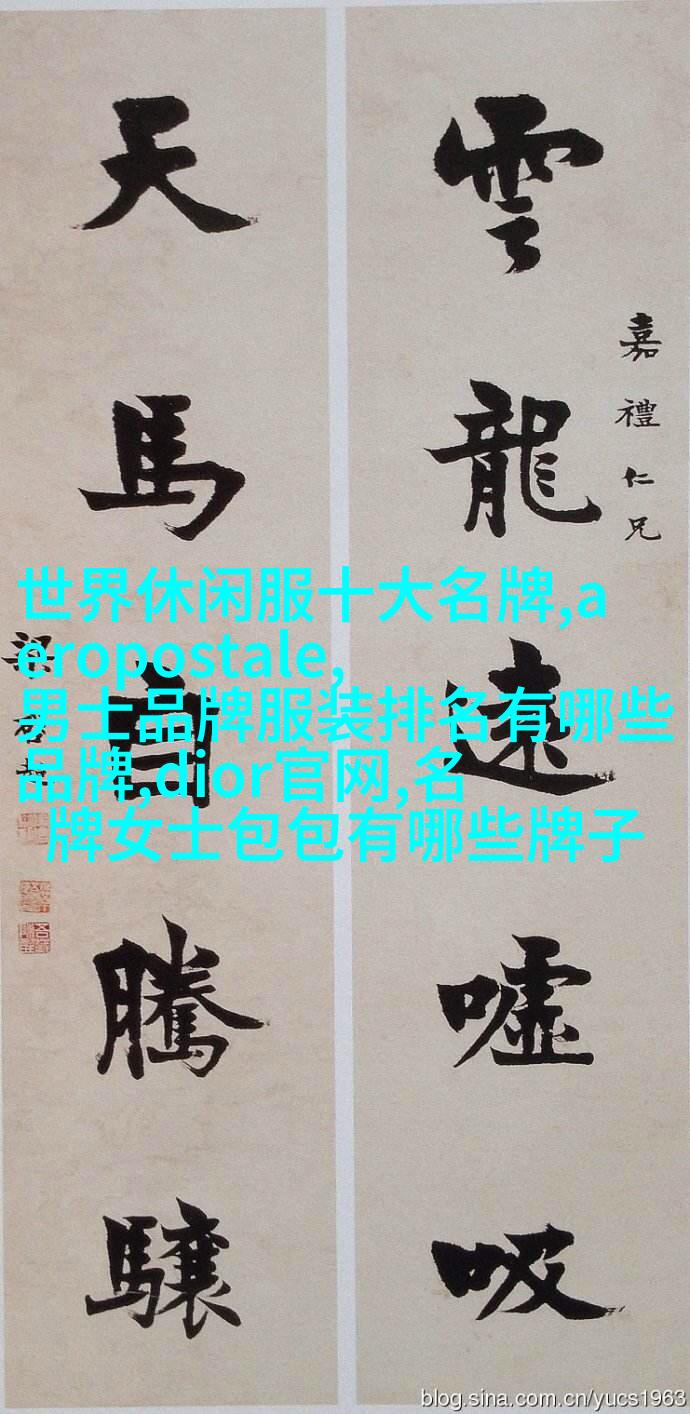 嘉禮仁兄
雲龍遠噓吸
天馬自騰驤
梁
世界休闲服十大名牌,a
eropostale,
男士品牌服装排名有哪些
品牌,dior官网,名
牌女士包包有哪些牌子
blog.sina.com.cn/yucs1963